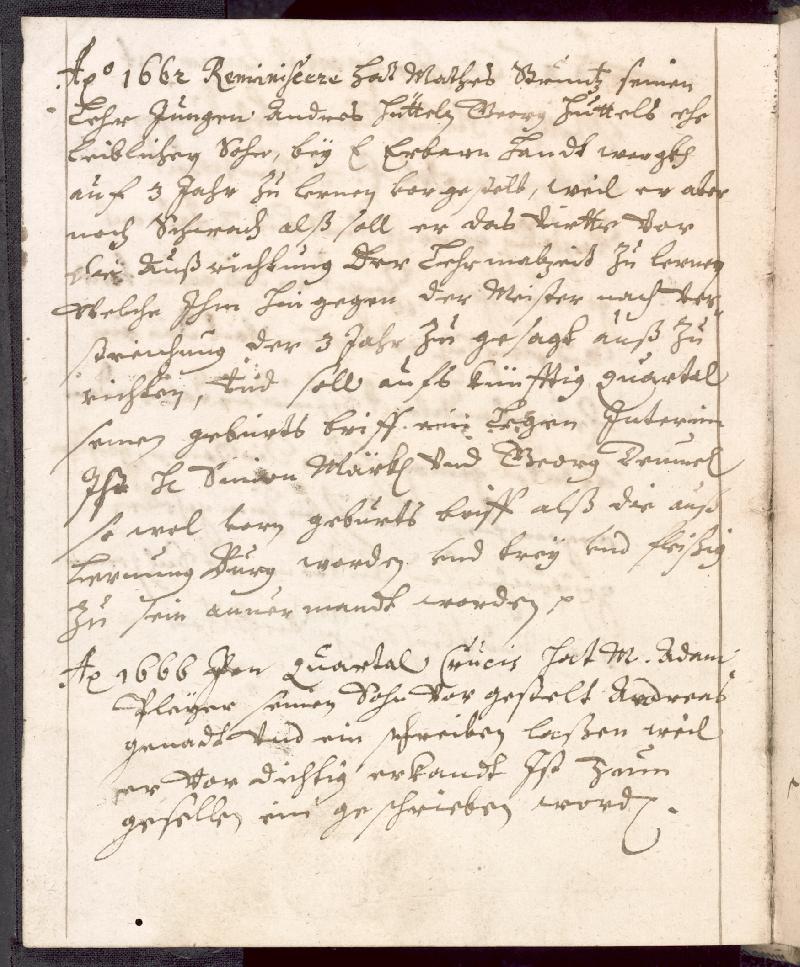 Aõ 1662 Reminiscere hat Mathes Stuntz seinen
Lehr Jungen Andres Hütteln Georg Hüttels ehe
leiblichen Sohn, bey E Erbarn Handt wergkh
auf 3 Jahr zu lernen vorgestelt, weil er aber
noch Schwach alß soll er das virtte vor
die Außrichtung Der Lehrmalzeit zu lernen
Welche Ihm hingegen der Meister nach ver
streichung der 3 Jahr zu gesagt auß zu
richten, vnd soll aufs künfftig quartal
seinen geburts briff ein Legen Interim
Ist H Simon Märkl vnd Georg
so wol vorn geburts briff alß die auß
Lernung Burg worden vnd trey vnd fleisig
zu sein anuermandt worden
Aõ 1666 Den Quartal Crucis hat M. Adam
Pleyer seinen Sohn vor gestelt Andreas
genadt vnd ein schreiben laßen weil
er vor dichtig erkandt Ist zum
gesellen ein geschrieben word.